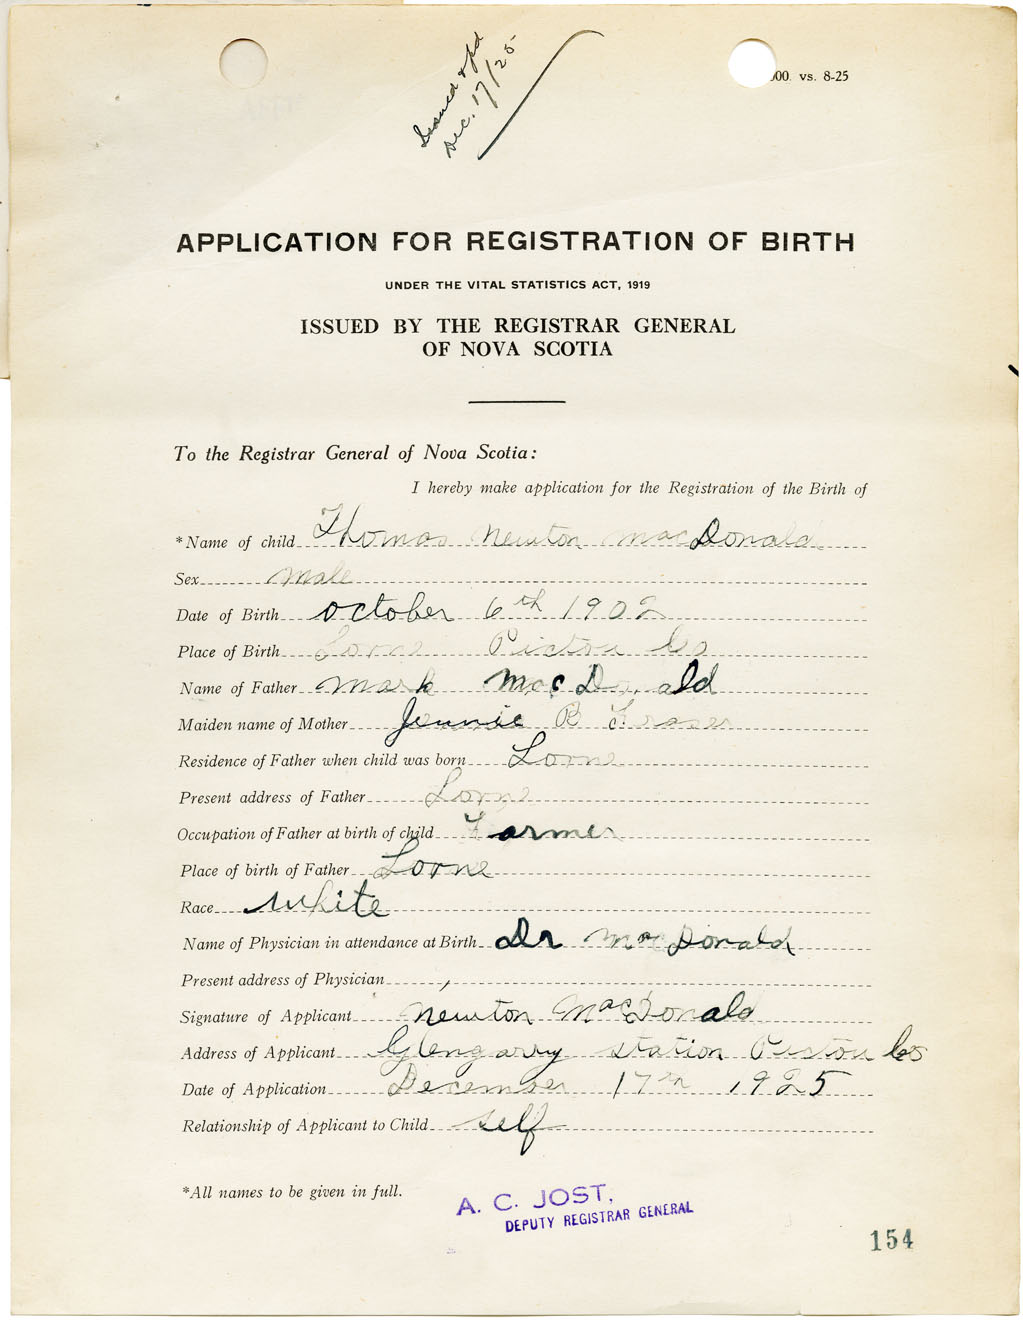 Issued & pd
Dec. 17/25
000. vs. 8-25
APPLICATION FOR REGISTRATION OF BIRTH
UNDER THE VITAL STATISTICS ACT, 1919
ISSUED BY THE REGISTRAR GENERAL
OF NOVA SCOTIA
To the Registrar General of Nova Scotia:
I hereby make application for the Registration of the Birth of
*Name of child Thomas Newton MacDonald
Sex Male
Date of Birth October 6th 1902
Place of Birth Lorne Pictou Co
Name of Father Mark MacDonald
Maiden name of Mother Jennie B Fraser
Residence of Father when child was born Lorne
Present address of Father Lorne
Occupation of Father at birth of child Farmer
Place of birth of Father Lorne
Race White
Name of Physician in attendance at Birth Dr MacDonald
Present address of Physician
Signature of Applicant Newton MacDonald
Address of Applicant Glengarry Station Pictou Co
Date of Application December 17th 1925
Relationship of Applicant to Child self
*All names to be given in full.
A. C. JOST,
DEPUTY REGISTRAR GENERAL
154